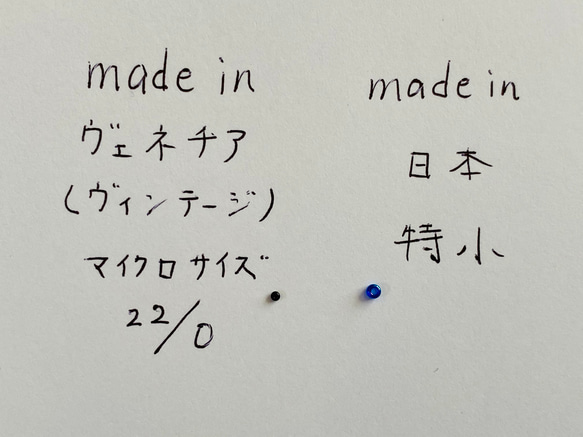 made in
ヴェネチア
(ヴィンテージ)
マイクロサイズ
22/0
made in
日本
特小